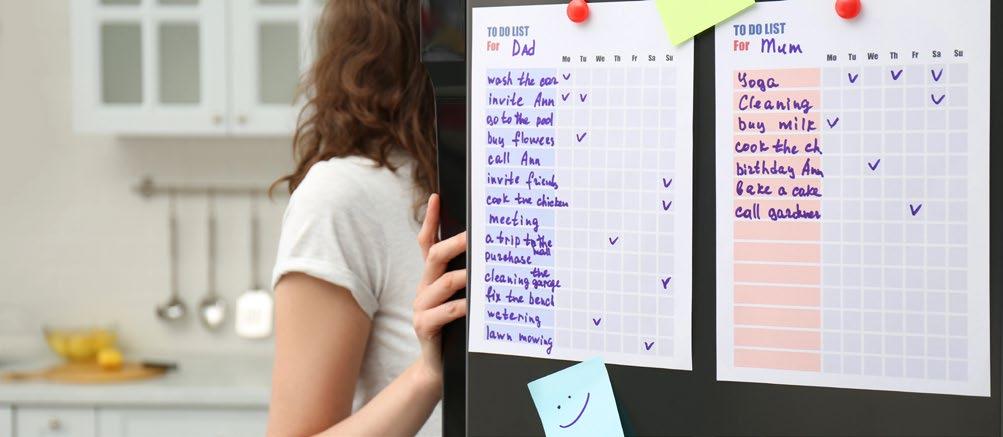 TO DO LIST
For Dad
Mo Tu We Th Fr Sa Su
wash the car
invite Ann
go to the pool
buy flowers
call Ann
invite friends
cook the chicken
meeting
a trip to the
purchase
cleaning the garage
fix the bench
watering
lawn mowing
TO DO LIST
For Mum
Mo Tu We Th Fr Sa Su
Yoga
Cleaning
buy milk
cook the ch
birthday Ann
bake a cake
call gardner